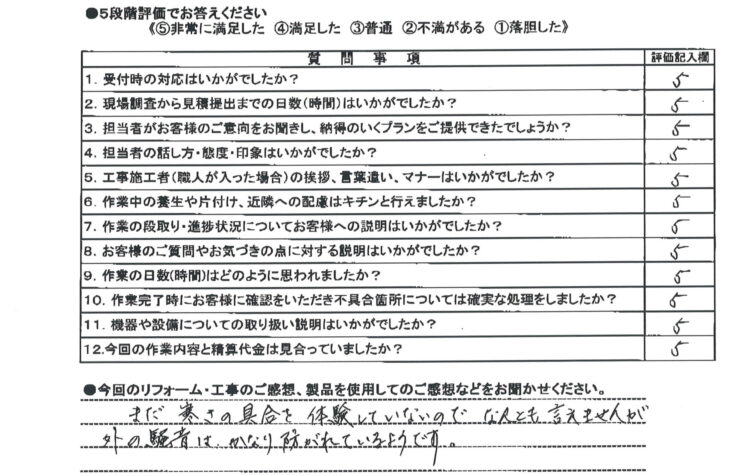 ●5段階評価でお答えください
《⑤非常に満足した ④満足した ③普通 ②不満がある ①落胆した》
質問事項 評価記入欄
1. 受付時の対応はいかがでしたか? 5
2. 現場調査から見積提出までの日数(時間)はいかがでしたか? 5
3. 担当者がお客様のご意向をお聞きし、納得のいくプランをご提供できたでしょうか? 5
4. 担当者の話し方・態度・印象はいかがでしたか? 5
5. 工事施工者(職人が入った場合)の挨拶、言葉遣い、マナーはいかがでしたか? 5
6. 作業中の養生や片付け、近隣への配慮はキチンと行えましたか? 5
7. 作業の段取り・進捗状況についてお客様への説明はいかがでしたか? 5
8. お客様のご質問やお気づきの点に対する説明はいかがでしたか? 5
9. 作業の日数(時間)はどのように思われましたか? 5
10. 作業完了時にお客様に確認をいただき不具合箇所については確実な処理をしましたか? 5
11. 機器や設備についての取り扱い説明はいかがでしたか? 5
12.今回の作業内容と精算代金は見合っていましたか? 5
●今回のリフォーム・工事のご感想、製品を使用してのご感想などをお聞かせください。
まだ寒さの具合を体験していないのでなんとも言えませんが
外の騒音は、かなり防がれているようです。